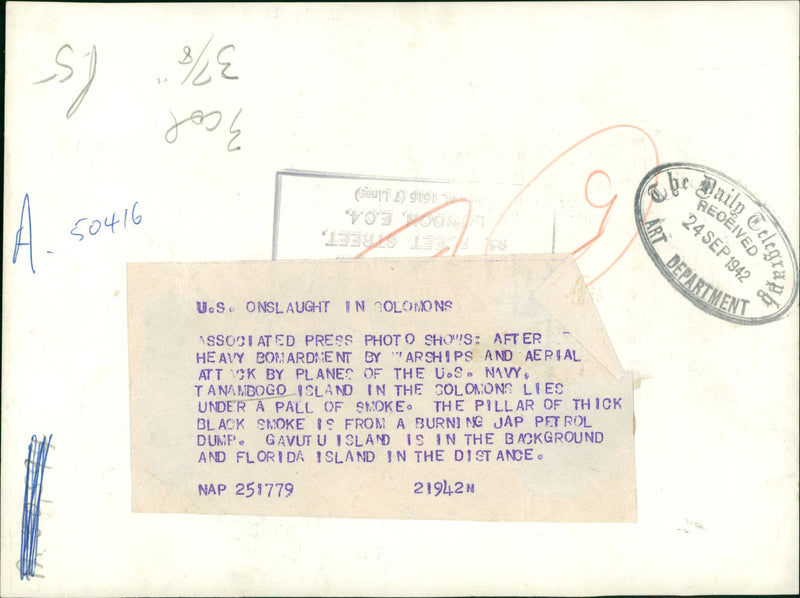 3 7/8
3 col
A. 50416
NAL 1616 (7 Lines)
LONDON, E.C.4.
85 FLEET STREET,
The Daily Telegraph
RECEIVED
24 SEP 1942
ART DEPARTMENT
U.S. ONSLAUGHT IN SOLOMONS
ASSOCIATED PRESS PHOTO SHOWS: AFTER
HEAVY BOMARDMENT BY WARSHIPS AND AERIAL
ATTACK BY PLANES OF THE U.S. NAVY.
TANAMBOGO ISLAND IN THE SOLOMONS LIES
UNDER A PALL OF SMOKE. THE PILLAR OF THICK
BLACK SMOKE IS FROM A BURNING JAP PETROL
DUMP. GAVUTU ISLAND IS IN THE BACKGROUND
AND FLORIDA ISLAND IN THE DISTANCE.
NAP 251779 21942H